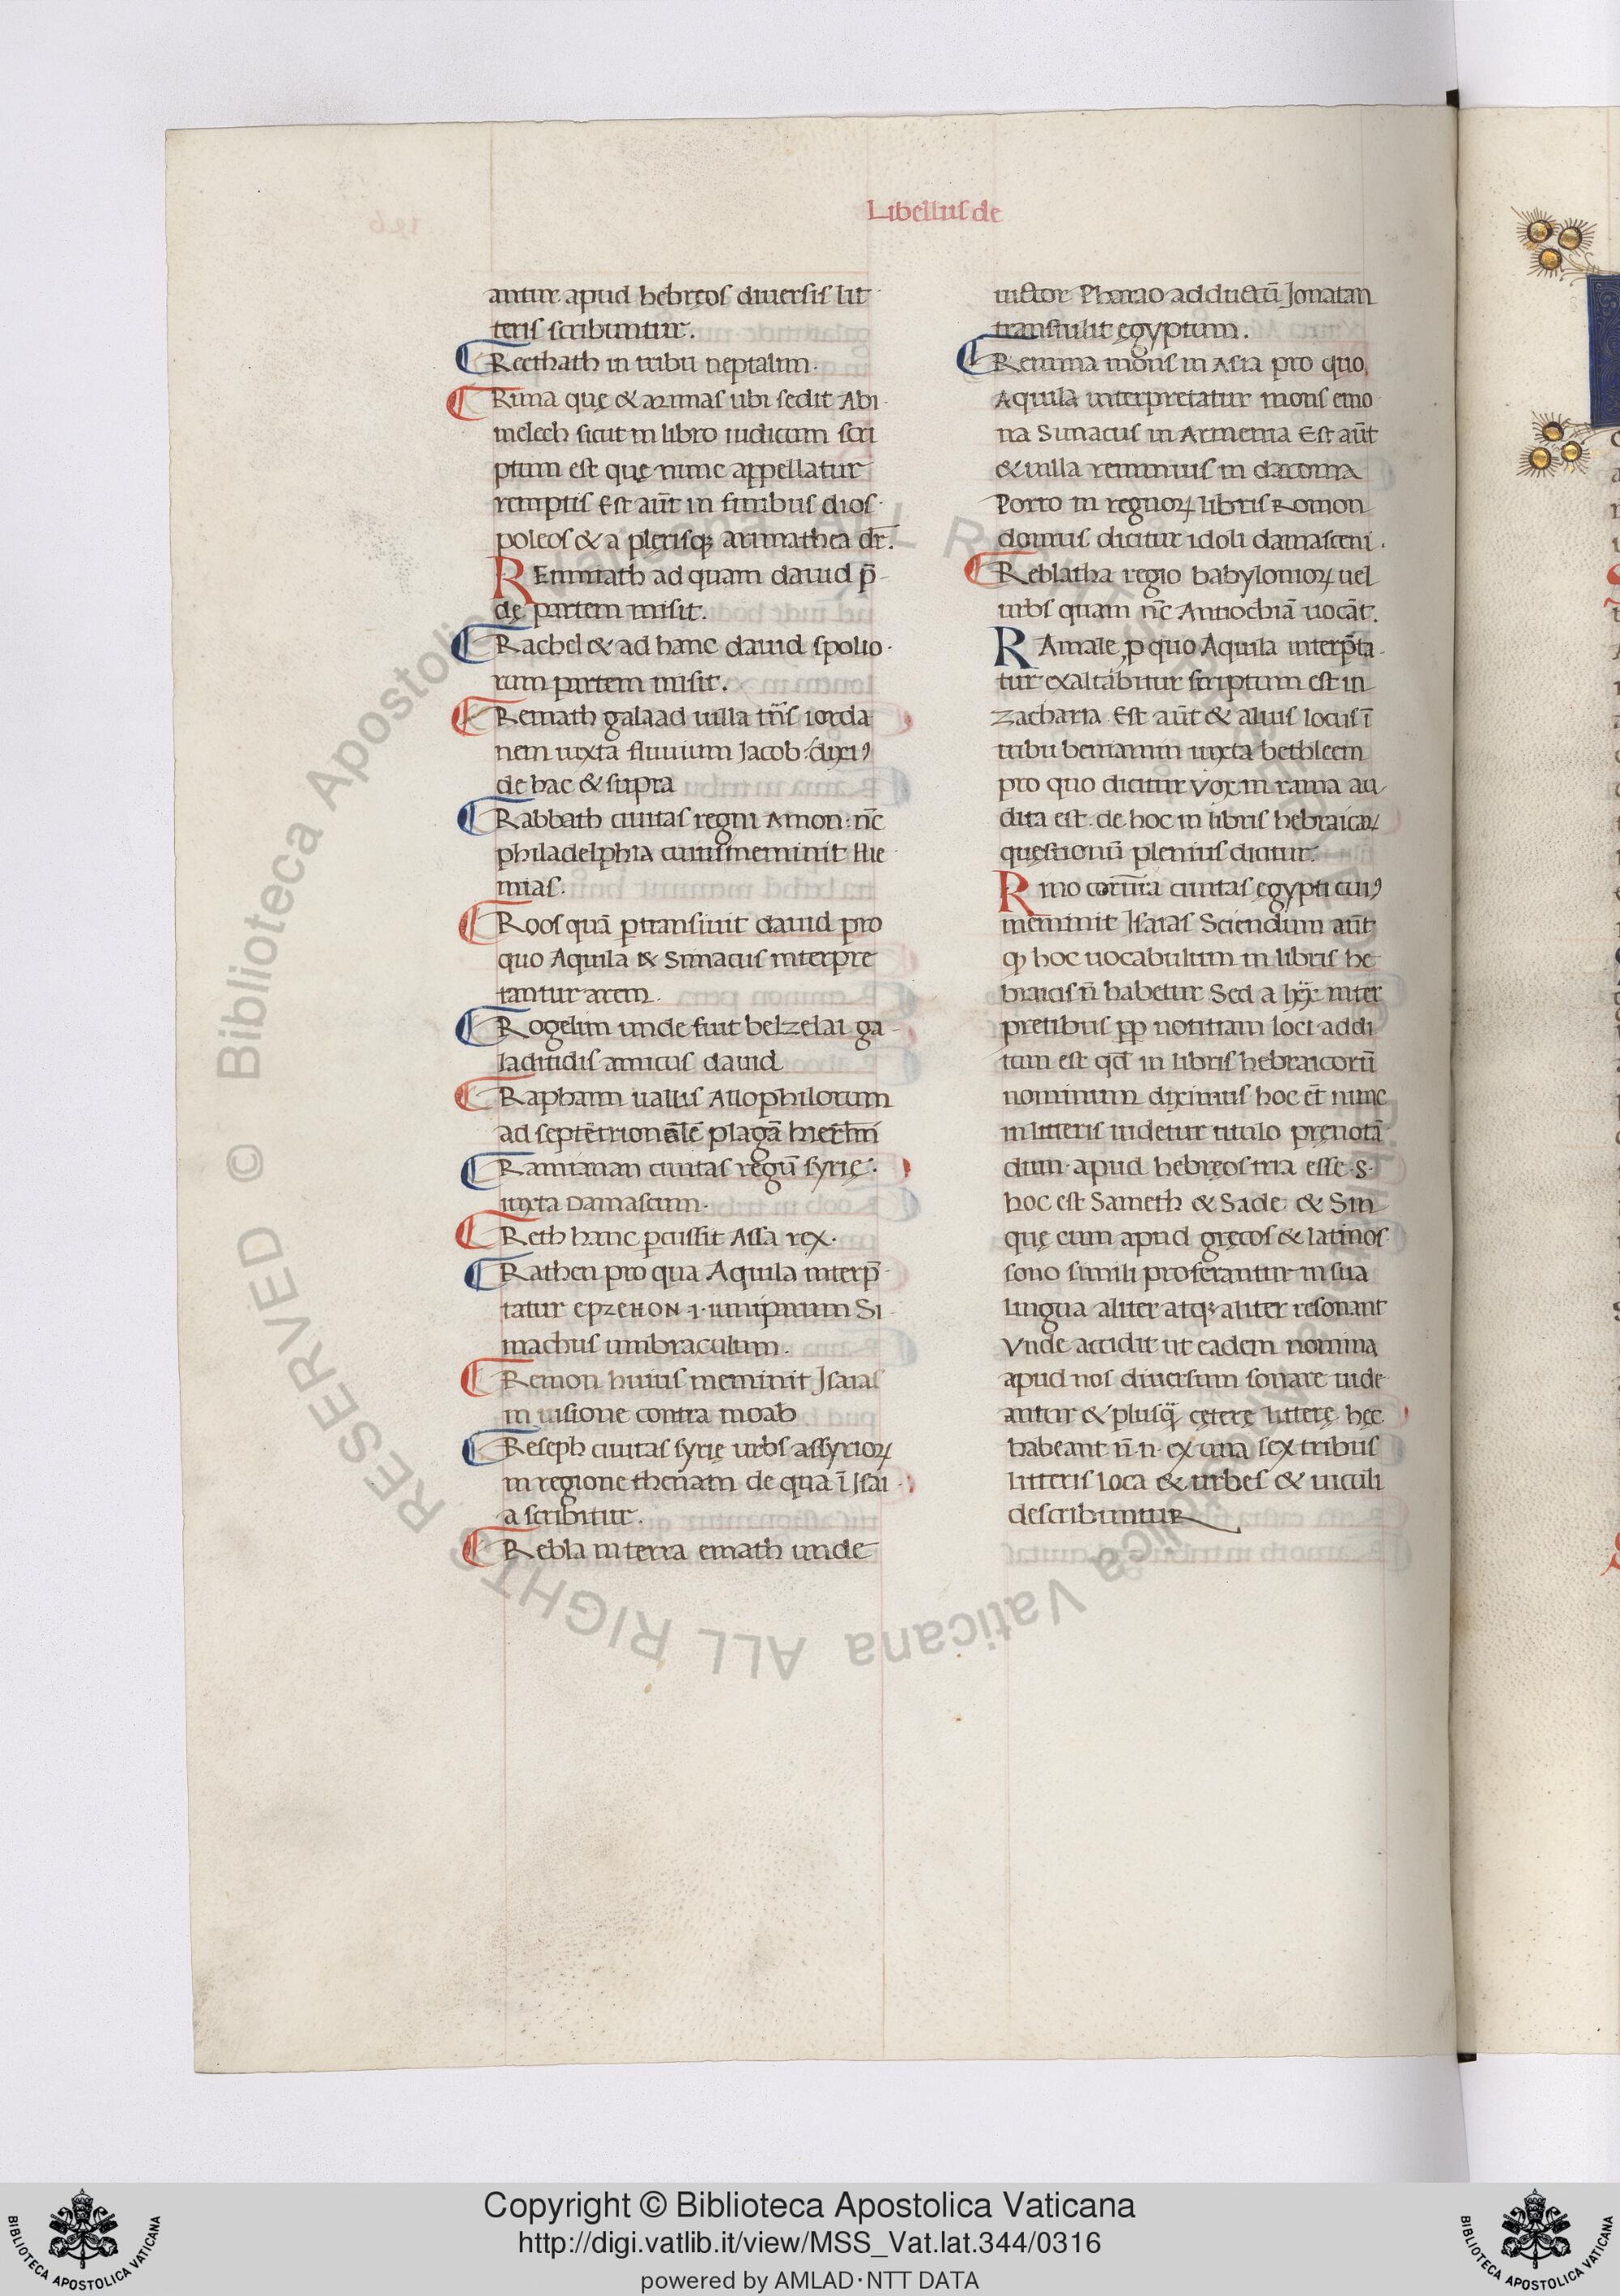 Libellus de
antur apud hebręos diuersis lit
teris scribuntur.
Recthath in tribu neptalim.
Rima quę & arimas ubi sedit Abi
melech sicut in libro iudicum scri
ptum est quę nunc appellatur
remptis Est aut̄ in finibus dios
poleos & a plerisq; arimathea dr̄.
REmmath ad quam dauid p̄
dę partem misit.
Rachel & ad hanc dauid spolio
rum partem misit.
Remath galaad uilla trn̄s iorda
nem iuxta fluuium Jacob. dixi᾽
de hac & supra
Rabbath ciuitas regni Amon: nc̄
philadelphia cuius meminit Hie
mias.
Roos quā ptransiuit dauid pro
quo Aquila & Simacus interpre
tantur arcem.
Rogelim unde fuit belzelai ga
laditidis amicus dauid
Raphaim uallis Allophilorum
ad septētrionalē plagā hierl̄mi
Ramaman ciuitas regū syrię.
iuxta Damascum.
Reth hanc pcussit Assa rex.
Rathen pro qua Aquila interp̄
tatur
machus umbraculum.
Remon huius meminit Jsaias
in uisione contra moab
Reseph ciuitas syrię urbs assyrioꝝ
in regione thenam de qua ī Jsai
a scribitur.
Rebla in terra emath unde
uictor Pharao adductū Jonatan
transtulit egyptum.
Remma mons in Asia pro quo
Aquila interpretatur mons emo
na Simacus in Armenia Est aut̄
& uilla remmus in daroma
Porro in regnoꝝ libris Romon
domus dicitur idoli damasceni.
Reblatha regio babylonioꝝ uel
urbs quam nc̄ Antiochiā uocāt.
RAmale ꝓ quo Aquila interp̄ta
tur exaltabitur scriptum est in
zacharia. Est aut̄ & alius locus ī
tribu beniamin iuxta bethleem
pro quo dicitur vox in rama au
dita est. de hoc in libris hebraicaꝝ
quęstionū plenius dicitur.
Rino coruria ciuitas egypti cui᾽
meminit Jsaias Sciendum aut̄
ꝙ hoc uocabulum in libris he
braicis n̄ habetur Sed a lxx inter
pretibus pp notitiam loci addi
tum est qđ in libris hebraicorū
nominum diximus hoc et̄ nunc
in litteris uidetur titulo pręnotā
dum. apud hebręos tria esse .s.
hoc est Sameth & Sade & Sin
quę cum apud gręcos & latinos
sono simili proferantur in sua
lingua aliter atq; aliter resonant
Vnde accidit ut eadem nomina
apud nos diuersum sonare uide
antur & plusq̄ cęterę litterę hęc
habeant n̄.n. ex una sex tribus
litteris loca & urbes & uiculi
describuntur
Copyright © Biblioteca Apostolica Vaticana
http://digi.vatlib.it/view/MSS_Vat.lat.344/0316
powered by AMLAD·NTT DATA
BIBLIOTECA APOSTOLICA VATICANA
BIBLIOTECA APOSTOLICA VATICANA
© Biblioteca Apostolica Vaticana ALL RIGHTS RESERVED